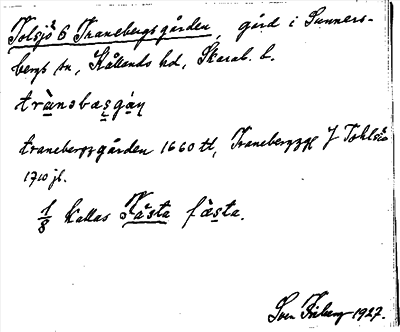 Tolsjö 6 Tranebergsgården, gård i Sunners-
bergs sn, Kållands hd, Skarab. l.
trànsbæsgáɳ
tranebergzgården 1660 tl, Tranebergzgl J Tohlsiö
1710 jb.
1/8 kallas Fästa fæsta.
Sven Friberg 1927.